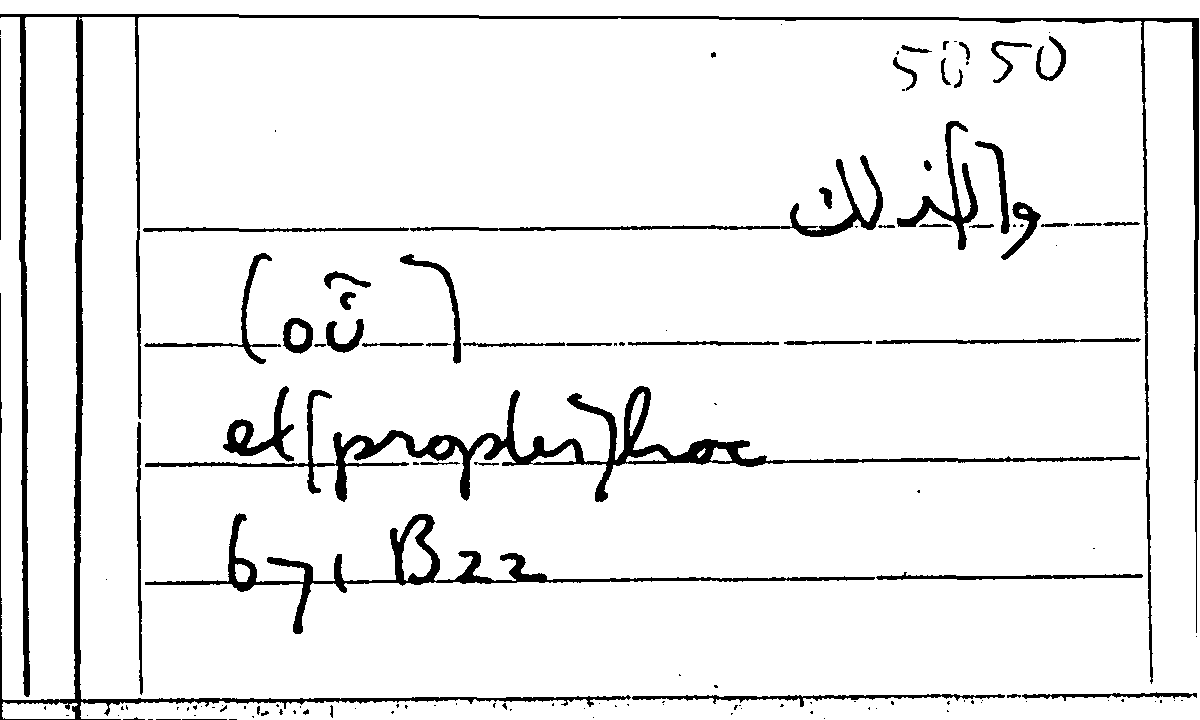 5050
و[ل]ذلك
[οὗ]
et [propter] hoc
671 B22